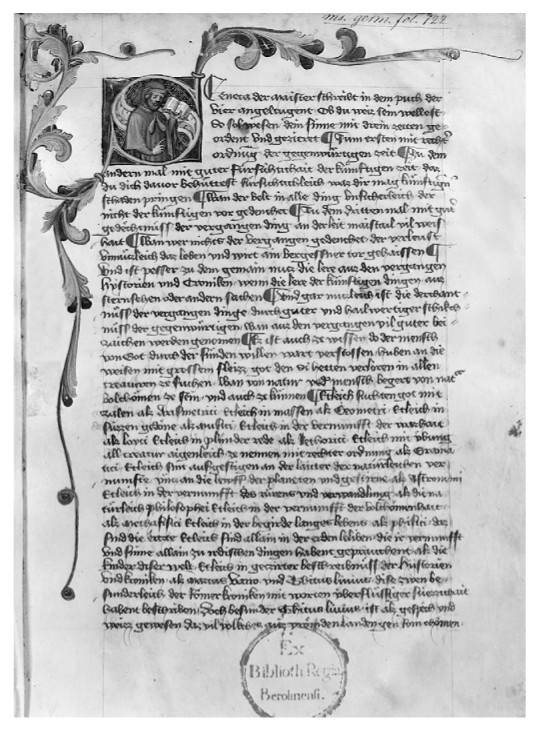 ms. germ. fol. 722
Seneca der maister schreibt in dem puch der
vier angeltugent Ob du weis sein wellest
So sol wesen dein sinne mit drein zeiten ge-
ordent vnd geczieret Zum ersten mit rechter
ordnung der gegenwurtigen zeit Zu dem
andern mal mit guter fursichtikait der kunfftigen zeit das
du dich dauor behuttest fursichticleich was dir mag kunfftigen
schaden pringen Wan der volt in alle ding vnsicherleich der
nicht der kunfftigen vor gedencket Zu dem dritten mal mit guter
gedechtnuss der vergangen ding an der leit maistail vil weis
hait Wan wer nichts der vergangen gedencket der verleust
vnnuczleich das leben vnd wirt ain vergessner tor gehaissen
vnd ist pesser zu dem gemain nucz die lere aus den vergangen
hystorien vnd Croniken wenn die lere der kunftigen dingen aus
sternsehen oder andern sachen Vnd gar nuczleich ist die
der vergangen dinge durch guter vnd hailwertiger
nuss der gegenwurtigen wan aus den vergangen vil guter bei
zaichen werden genomen Es ist auch ze wissen do der mensch
von Got durch der sunden willen wart verstossen huben an die
weisen mit grossem fleizz got den si hetten verloren in allen
creaturen ze suchen wan von natur yeder mensch begert von
volchomen ze sein vnd auch ze kunnen Etleich suchten got mit
zalen als Arismetrici Etleich in massen als Geometri Etleich in
suzzen gedone als musici Etleich in der vernunfft der warhait
als loyci Etleich in plunder rede als Rethorici Etleich mit vbung
all creatur aigenleich ze nennen mit rechter ordnung als Grama
tici Etleich sint aufgestigen an der laitter der naturleichen ver
nunfte vncz an die leuff der planeten vnd gestirne als Astronomi
Etleich in der vernunfft des rurens vnd verwandlung als die na
turleich philosophei Etleich in der vernunfft der volchomenhait
als methafisici Etleich in der begirde langes lebens als phisici das
sind die ertzte Etleich sind allain in der erden beliben die ir vernunfft
vnd sinne allain zu irdischen dingen habent gepraucht als die
kinder diser welt Etleich in gezirter beschreibnuss der historien
vnd kroniken als Marcus Varro vnd Thitus liuius dise zwen be
sunderleich der romer kroniken mit worten vberflussiger
habent beschriben Doch besunder Thitus liuius ist als gespech vnd
weis gewesen das vil volkes aus fremden landen gen rom chomen
Ex
Biblioth. Regia
Berolinensi.